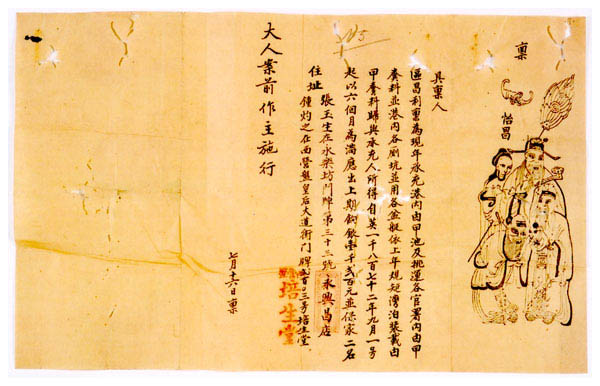 稟
怡昌
具稟人
區昌利稟為現年承充港內由甲池及挑運各官署內由甲
糞料並港內各廁坑並用各盆艇依上年規矩灣泊裝載由
甲糞料歸與承充人所得自英一千八百七十二年九月一号
起以六個月為滿應出上期餉銀壹千弍百元並保家二名
No 5
張玉生在永樂坊門牌第三十三號永興昌店
住址
鍾灼之在西營盤皇后大道街門牌弍百〇三号培生堂
培生堂
大人案前作主施行
七月十六日稟